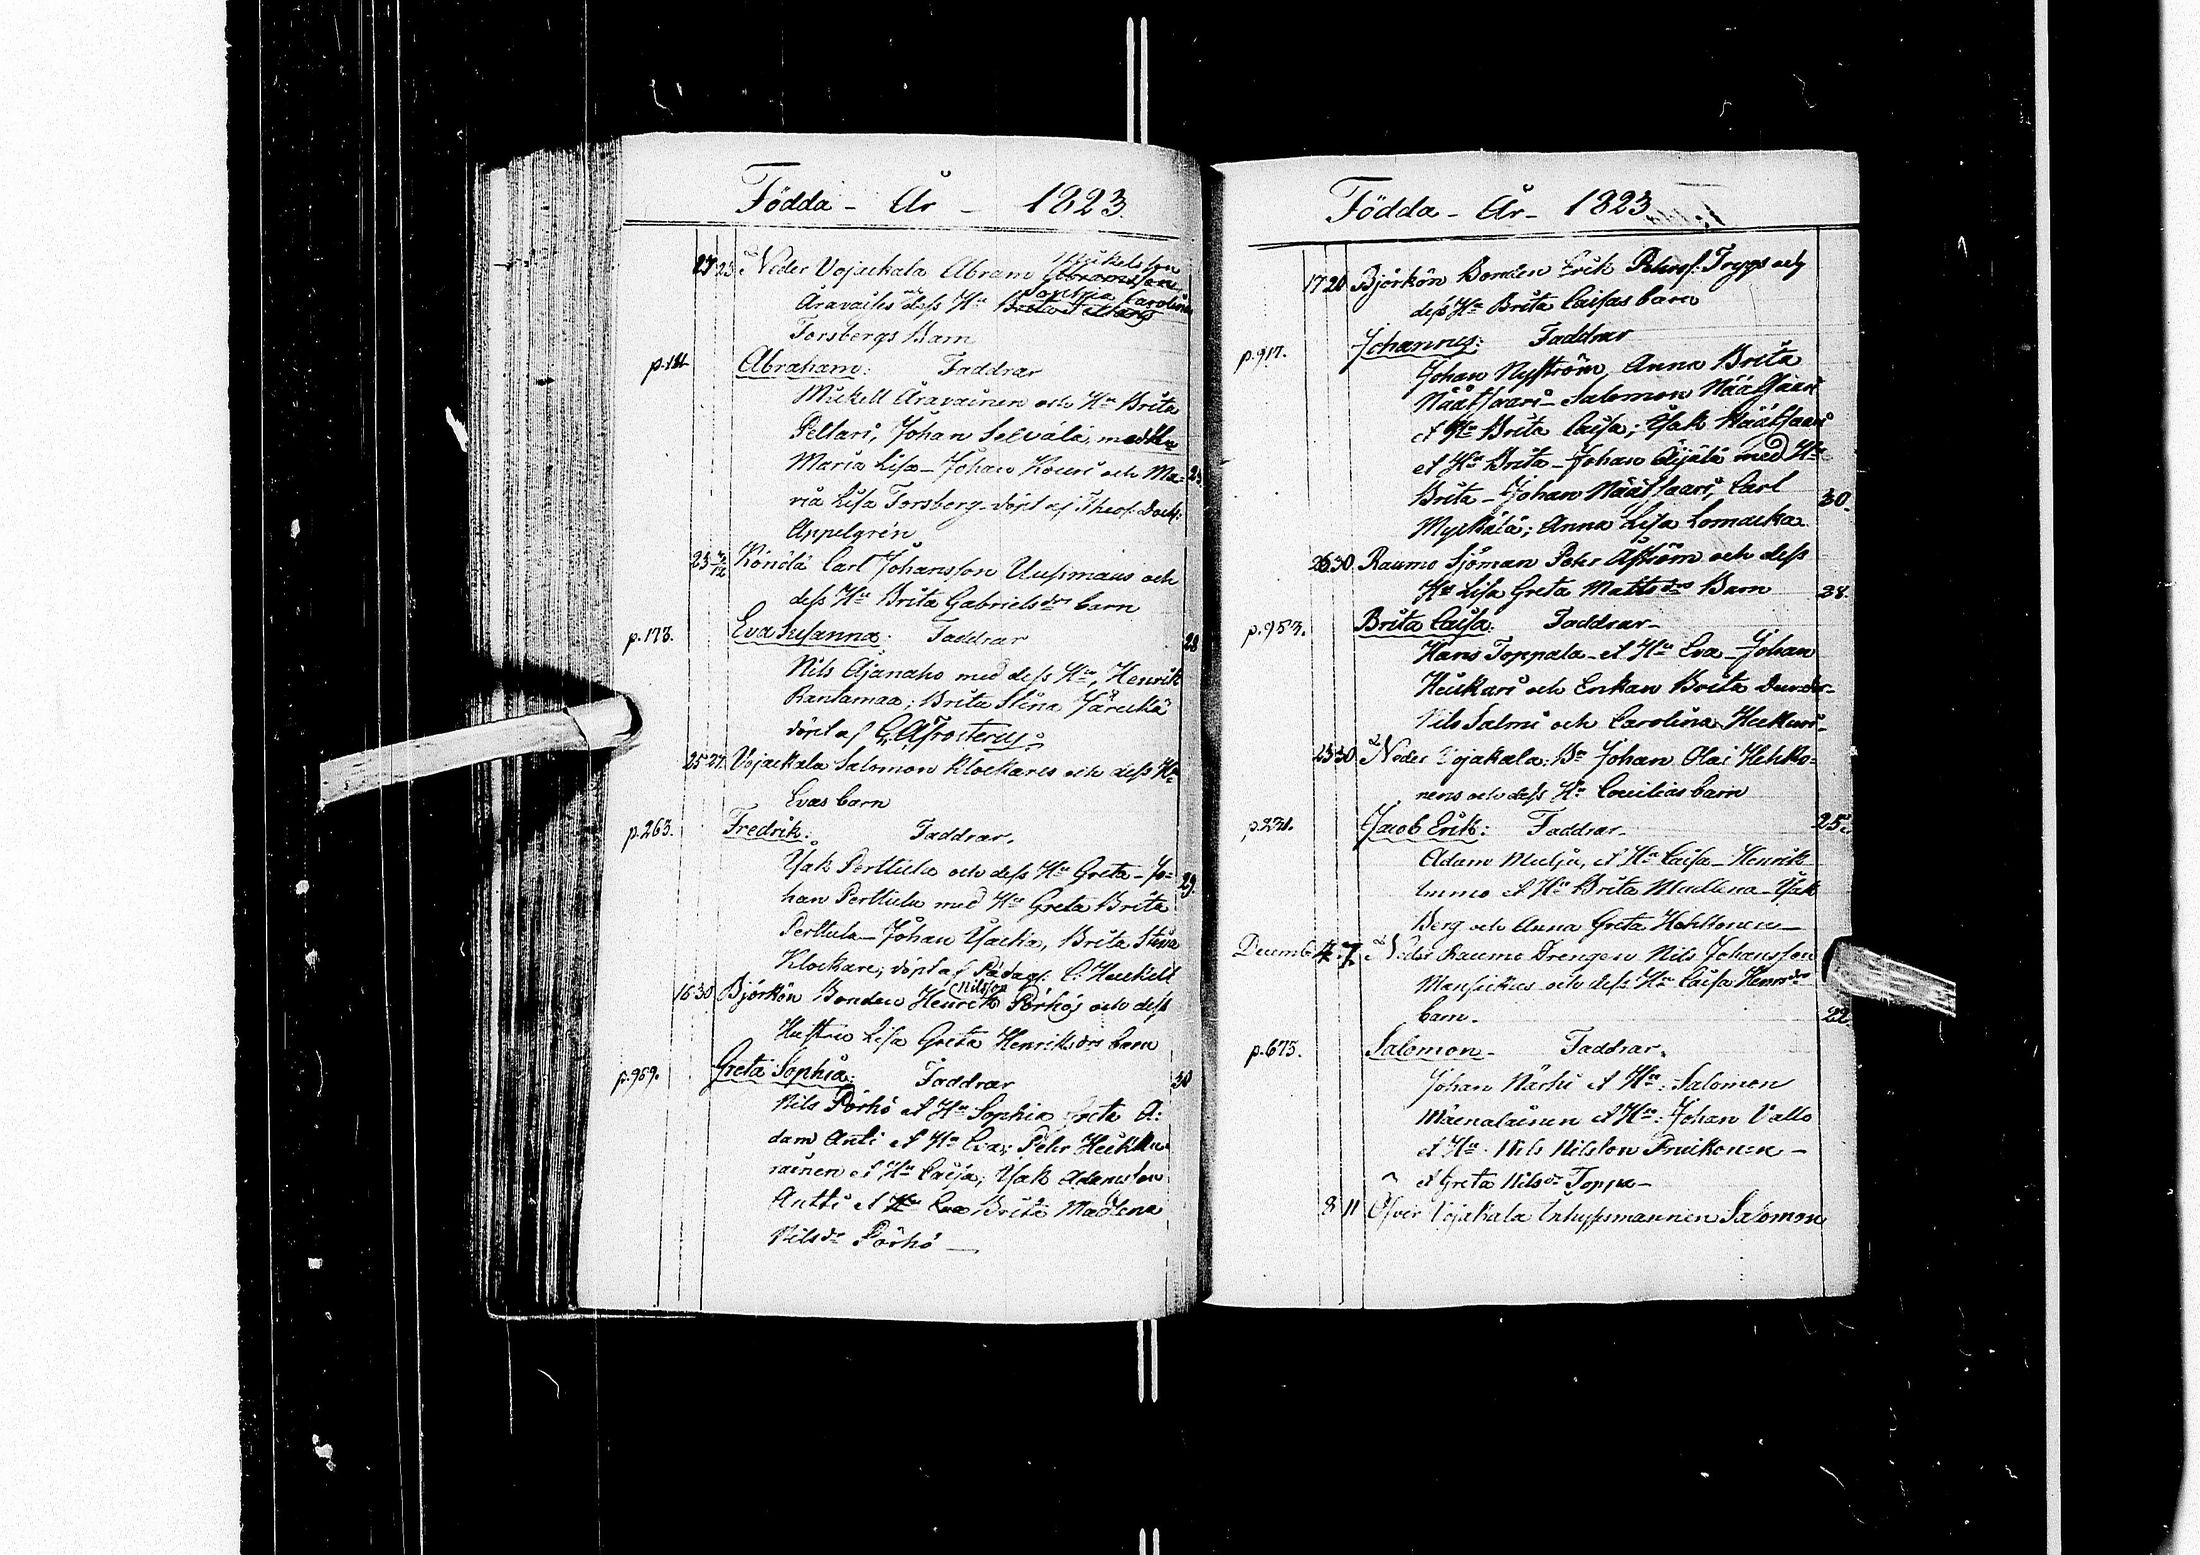 Födda - År - 1823.
23 25 Neder Vojackala Abram Mickelsson Abramsson
Aravaihs och dess Hu Sophia Carolina
Forsbergs Barn
p.121 Abraham: Faddrar
Mickell Aravainen och Hu Brita
Pellari, Johan Selvälä, med Hu
Maria Lisa - Johan Kouri och Ma- 2
ria Lisa Forsberg döpt af Theol. Doct:
Appelgrén
23 3/12 Könölä Carl Johansson Uusimaas och
dess Hu Brita Gabrielsdrs barn
p.178. Eva Susanna: Faddrar 28
Nils Ajanaho med dess Hu, Henrik
Rantamaa; Brita Stina
döpt af G. A. Frosterus
25 27 Vojackala Salomon Klockares och dess Hu
Evas barn
p.263. Fredrik: Faddrar.
Isak Perttula och dess Hu Greta - Jo- 29.
han Perttula med Hu Greta Brita
Perttula - Johan Brita Stina
Klockare; döpt af Pädag: C. Heickell
16 30 Björkön Bonden Henrik Nilsson Pörhös och dess
Hustru Lisa Greta Henriksdrs barn
p.959. Greta Sophia: Faddrar 30
Nils Pörhö et Hu Sophia Greta A:
dam Anti et Hu Eva; Petr
rainen et Hu Caisa; Isak Adamsson
Antti et Hu Eva Brita Madlena
Nilsdr Pörhö -
Födda - År - 1823
17 20 Björkön Bonden Erik Petersf: Tryggs och
dess Hu Brita Caisas barn
p.917. Johannes: Faddrar
Johan Nyström, Anna Brita
Näätsaari - Salomon Näätsaari
et Hu Brita Caisa; Isak Näätsaari
et Hu Brita - Johan Äijälä med Hu
Brita - Johan Näätsaari, Carl 30.
Myckälä; Anna Lisa Lomacka
26 30 Raumo Sjöman Petr Åström och dess
Hu Lisa Greta Mattsdrs Barn 28.
p.953. Brita Caisa: Faddrar -
Hans Toppala et Hu Eva - Johan
Heickari och Enkan Brita
Nils Salmi och Carolina
23 30 Neder Vojakala: Bn Johan Olai Hehko-
nens och dess Hu Ceciliasbarn
p.221. Jacob Erik: Faddrar - 25.
Adam et Hu Caisa - Henrik
Immo et Hu Brita - Isak
Berg och Anna Greta Hehkonen -
Decemb 4. 7. Neder Raumo Drengen Nils Johansson
Mansickas och dess Hu Caisa Henrdrs
barn. 22.
p.675. Salomon - Faddrar.
Johan Närhi et Hu: Salomon
Mäenalainen et Hu: Johan Vallo
et Hu. Nils Nilsson
et Greta Nilsdr Toppa -
8 11 Öfver Vojakala Inhysesmannen Salomon